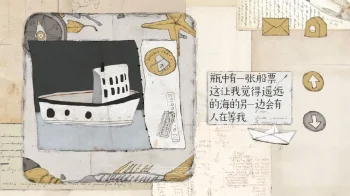 瓶中有一张船票
这让我觉得遥远
的海的另一边会有
人在等我